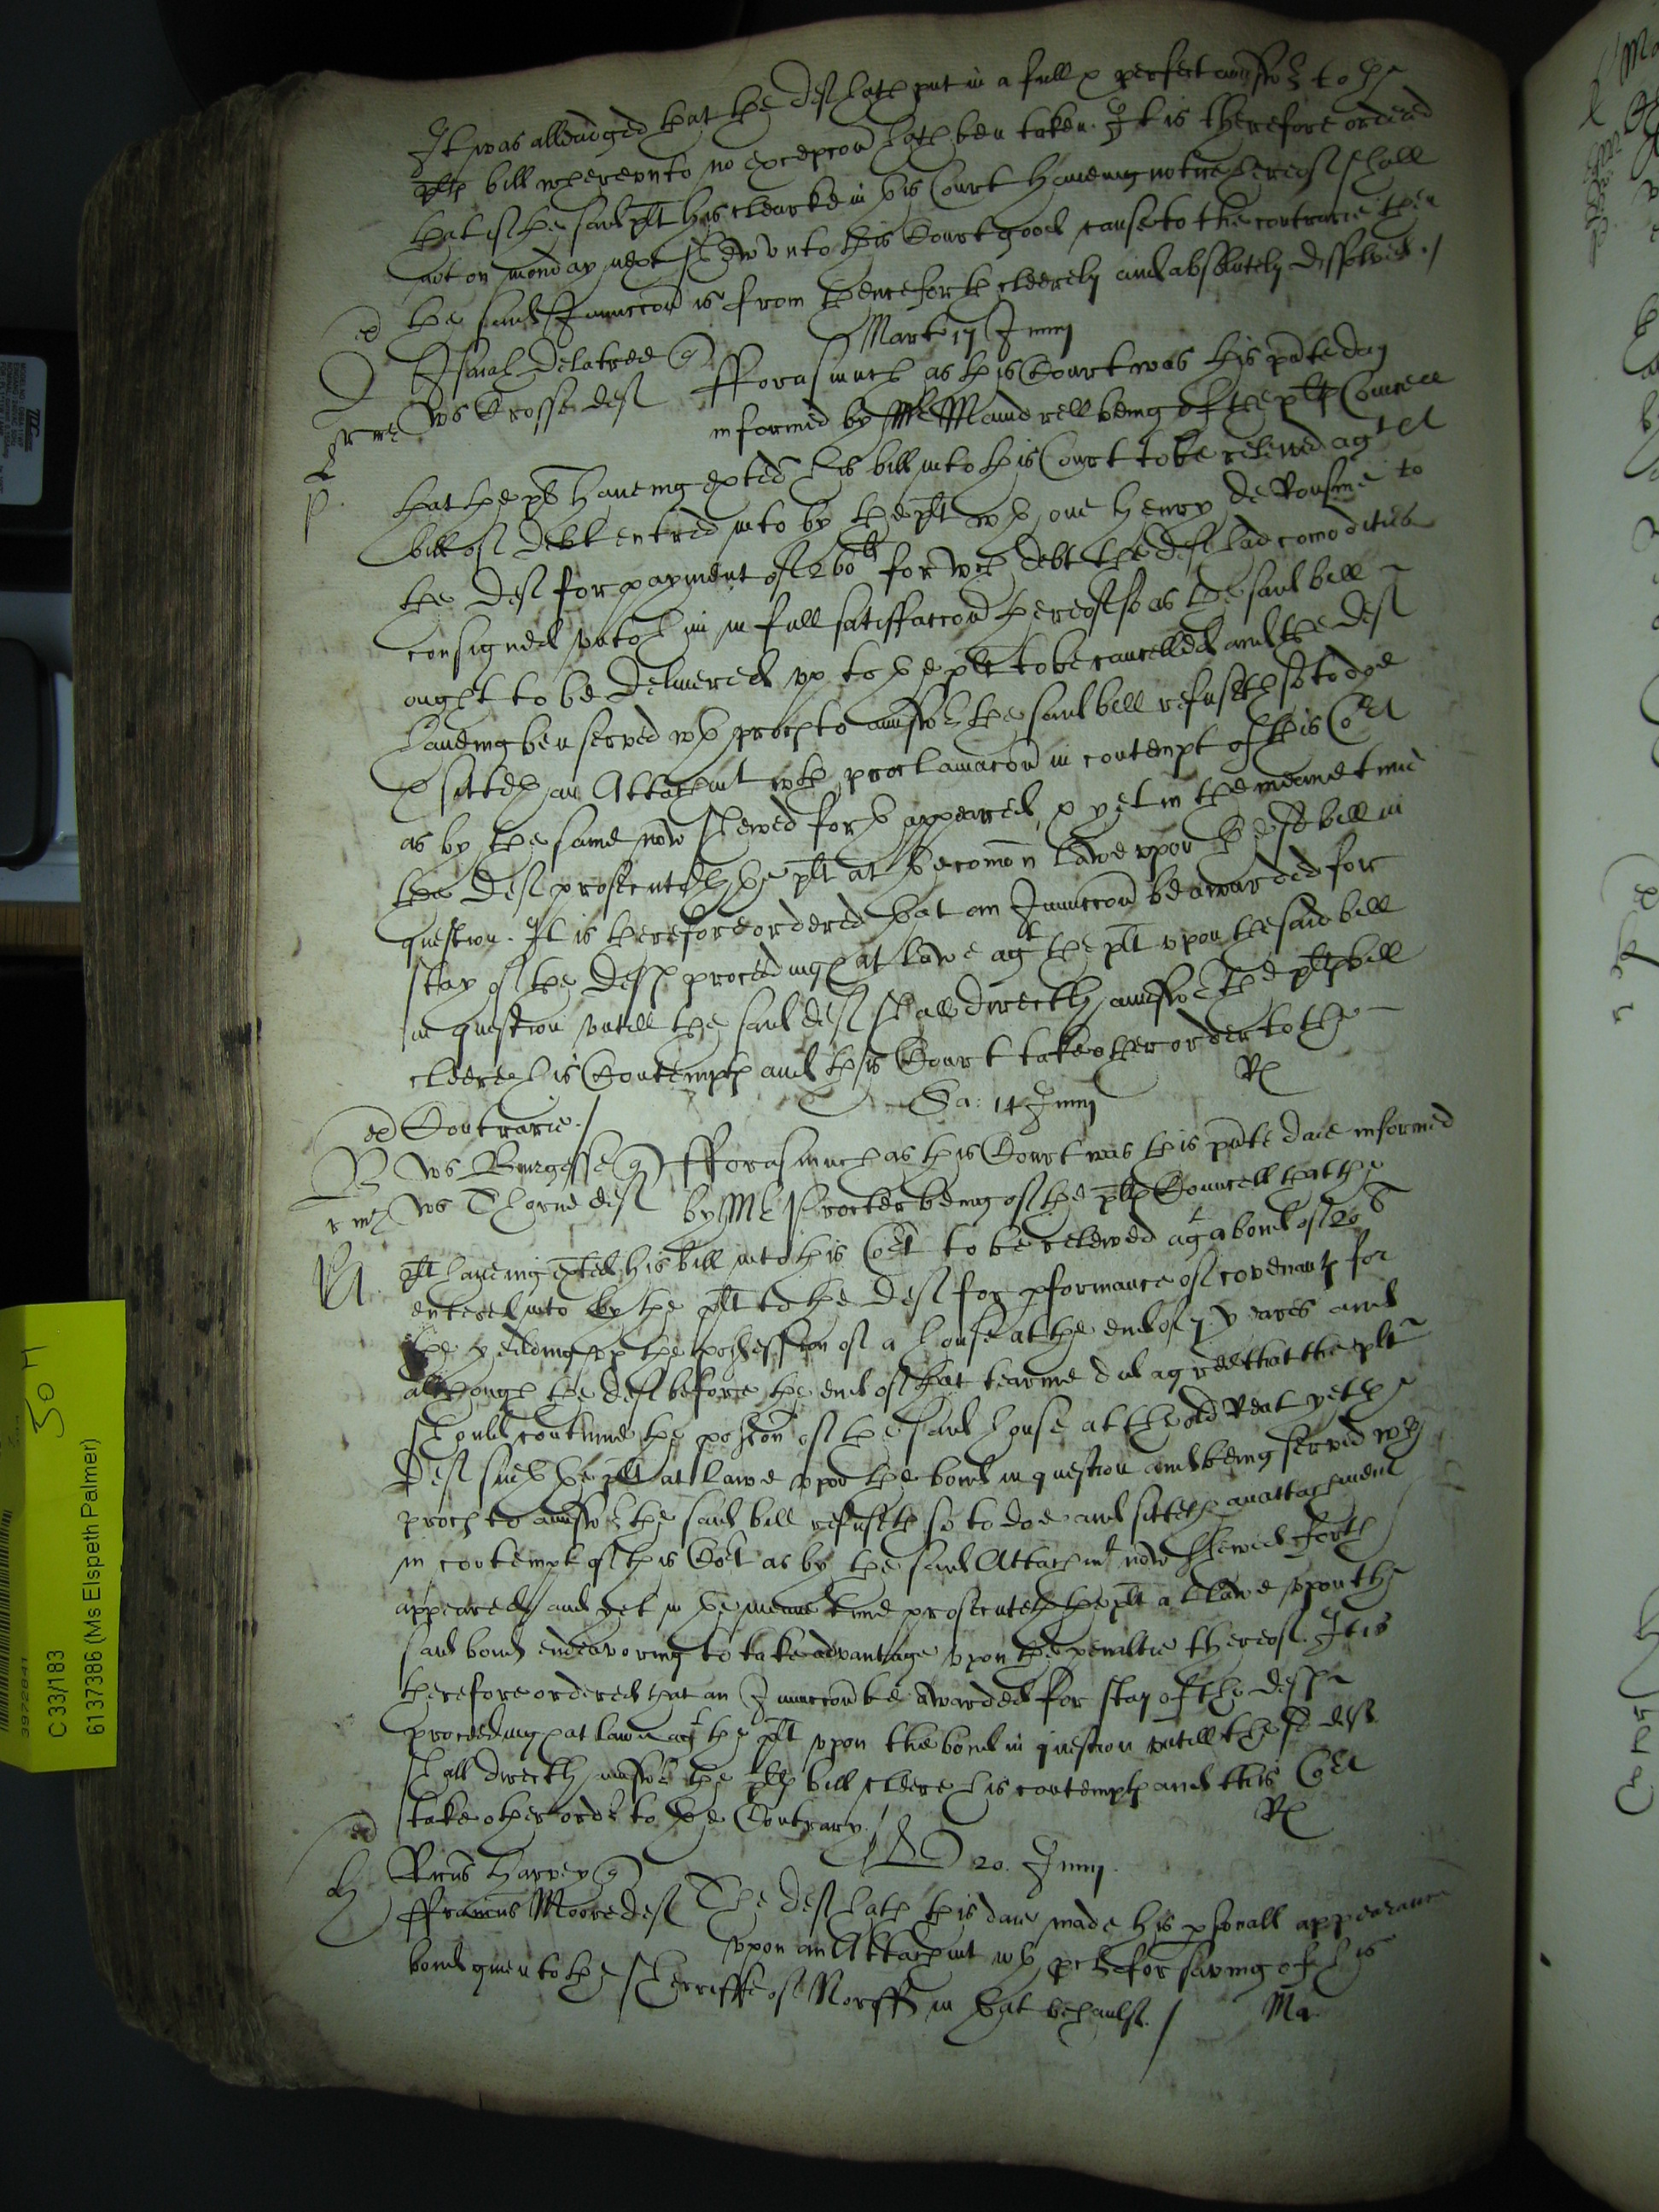 It was alleadged that the def hath put in a full & perfect answer to the
plts bill wherevnto no excepcon hath ben taken. It is therefore ordered
that if the said plt his clearke in this Court haveing notice hereof shall
not on monday next shew vnto this Court good cause to the contrarie then
the said Iniunccon is from thenceforth cleerely and absolutely dissolved ./
Mart 17 Iunij
D
Delatree q
Crosse def
fforasmuch as this Court was this pnte day
informed by Mr Maundrell being of the plts Councell
that the plt haveing exted his bill into this Court to be releived agt a
bill of debt entred into by the plt wth one Henry de
to
the def for payment of 260li for wch debt the def had comodities
consigned vnto him in full satisfaccon thereof so as the said bill
ought to be delivered vp to the plt to be cancelled and the def
haveing ben served wth proces to answer the said bill refuseth so to doe
& sitteth an Attachmt wth proclamacon in contempt of this Cort
as by the same now shewed forth appeared, & yet in the meane time
the def prosecuteth the plt at the comon lawe vpon the sd bill in
question. It is therefore ordered that an Iniunccon be awarded for
stay of the defs proceedings at lawe agt the plt vpon the said bill
in question vntill the said def shall directly answer the plts bill
cleere his Contempts and this Court take other order to the
Contrarie ./
Sa: 14 Iunij
Rl
B
Ws Burgesse q
Ws Thorne def
fforasmuch as this Court was this pnte daie informed
by Mr Procter being of the plts Councell that the
plt haveing exted his bill into this Cort to be releived agt a bond of 20li
entered into by the plt to the def for pformance of covenants for
the yeilding vp the possession of a house at the end of 7 yeares and
although the def before the end of that tearme did agree that the plt
should contynue the possion of the said house at the old Rent yet the
def sueth the plt at lawe vpon the bond in question and being served wth
proces to answer the said bill refuseth so to doe and sitteth an attachment
in contempt of this Cort as by the said Attachmt now shewed forth
appeared, and yet in the meane time prosecuteth the plt at lawe vpon the
said bond endeavoring to take advantage vpon the penaltie thereof. It is
therefore ordered that an Iniunccon be awarded for stay of the defs
proceedings at lawe agt the plt vpon the bond in question vntill the sd def
shall directly answer the plts bill cleere his contempts and this Cort
take other order to the Contrary ./
Rl
20. Iunij.
H
Ricus Harvey q
ffrancus Moore def
The def hath this daie made his psonall appearance
vpon an Attachmt wth pr for saving of his
bond given to the Sherriffe of Norff in that behaulf ./
Ma
3972841
C 33/183
6137386 (Ms Elspeth Palmer)
50 H